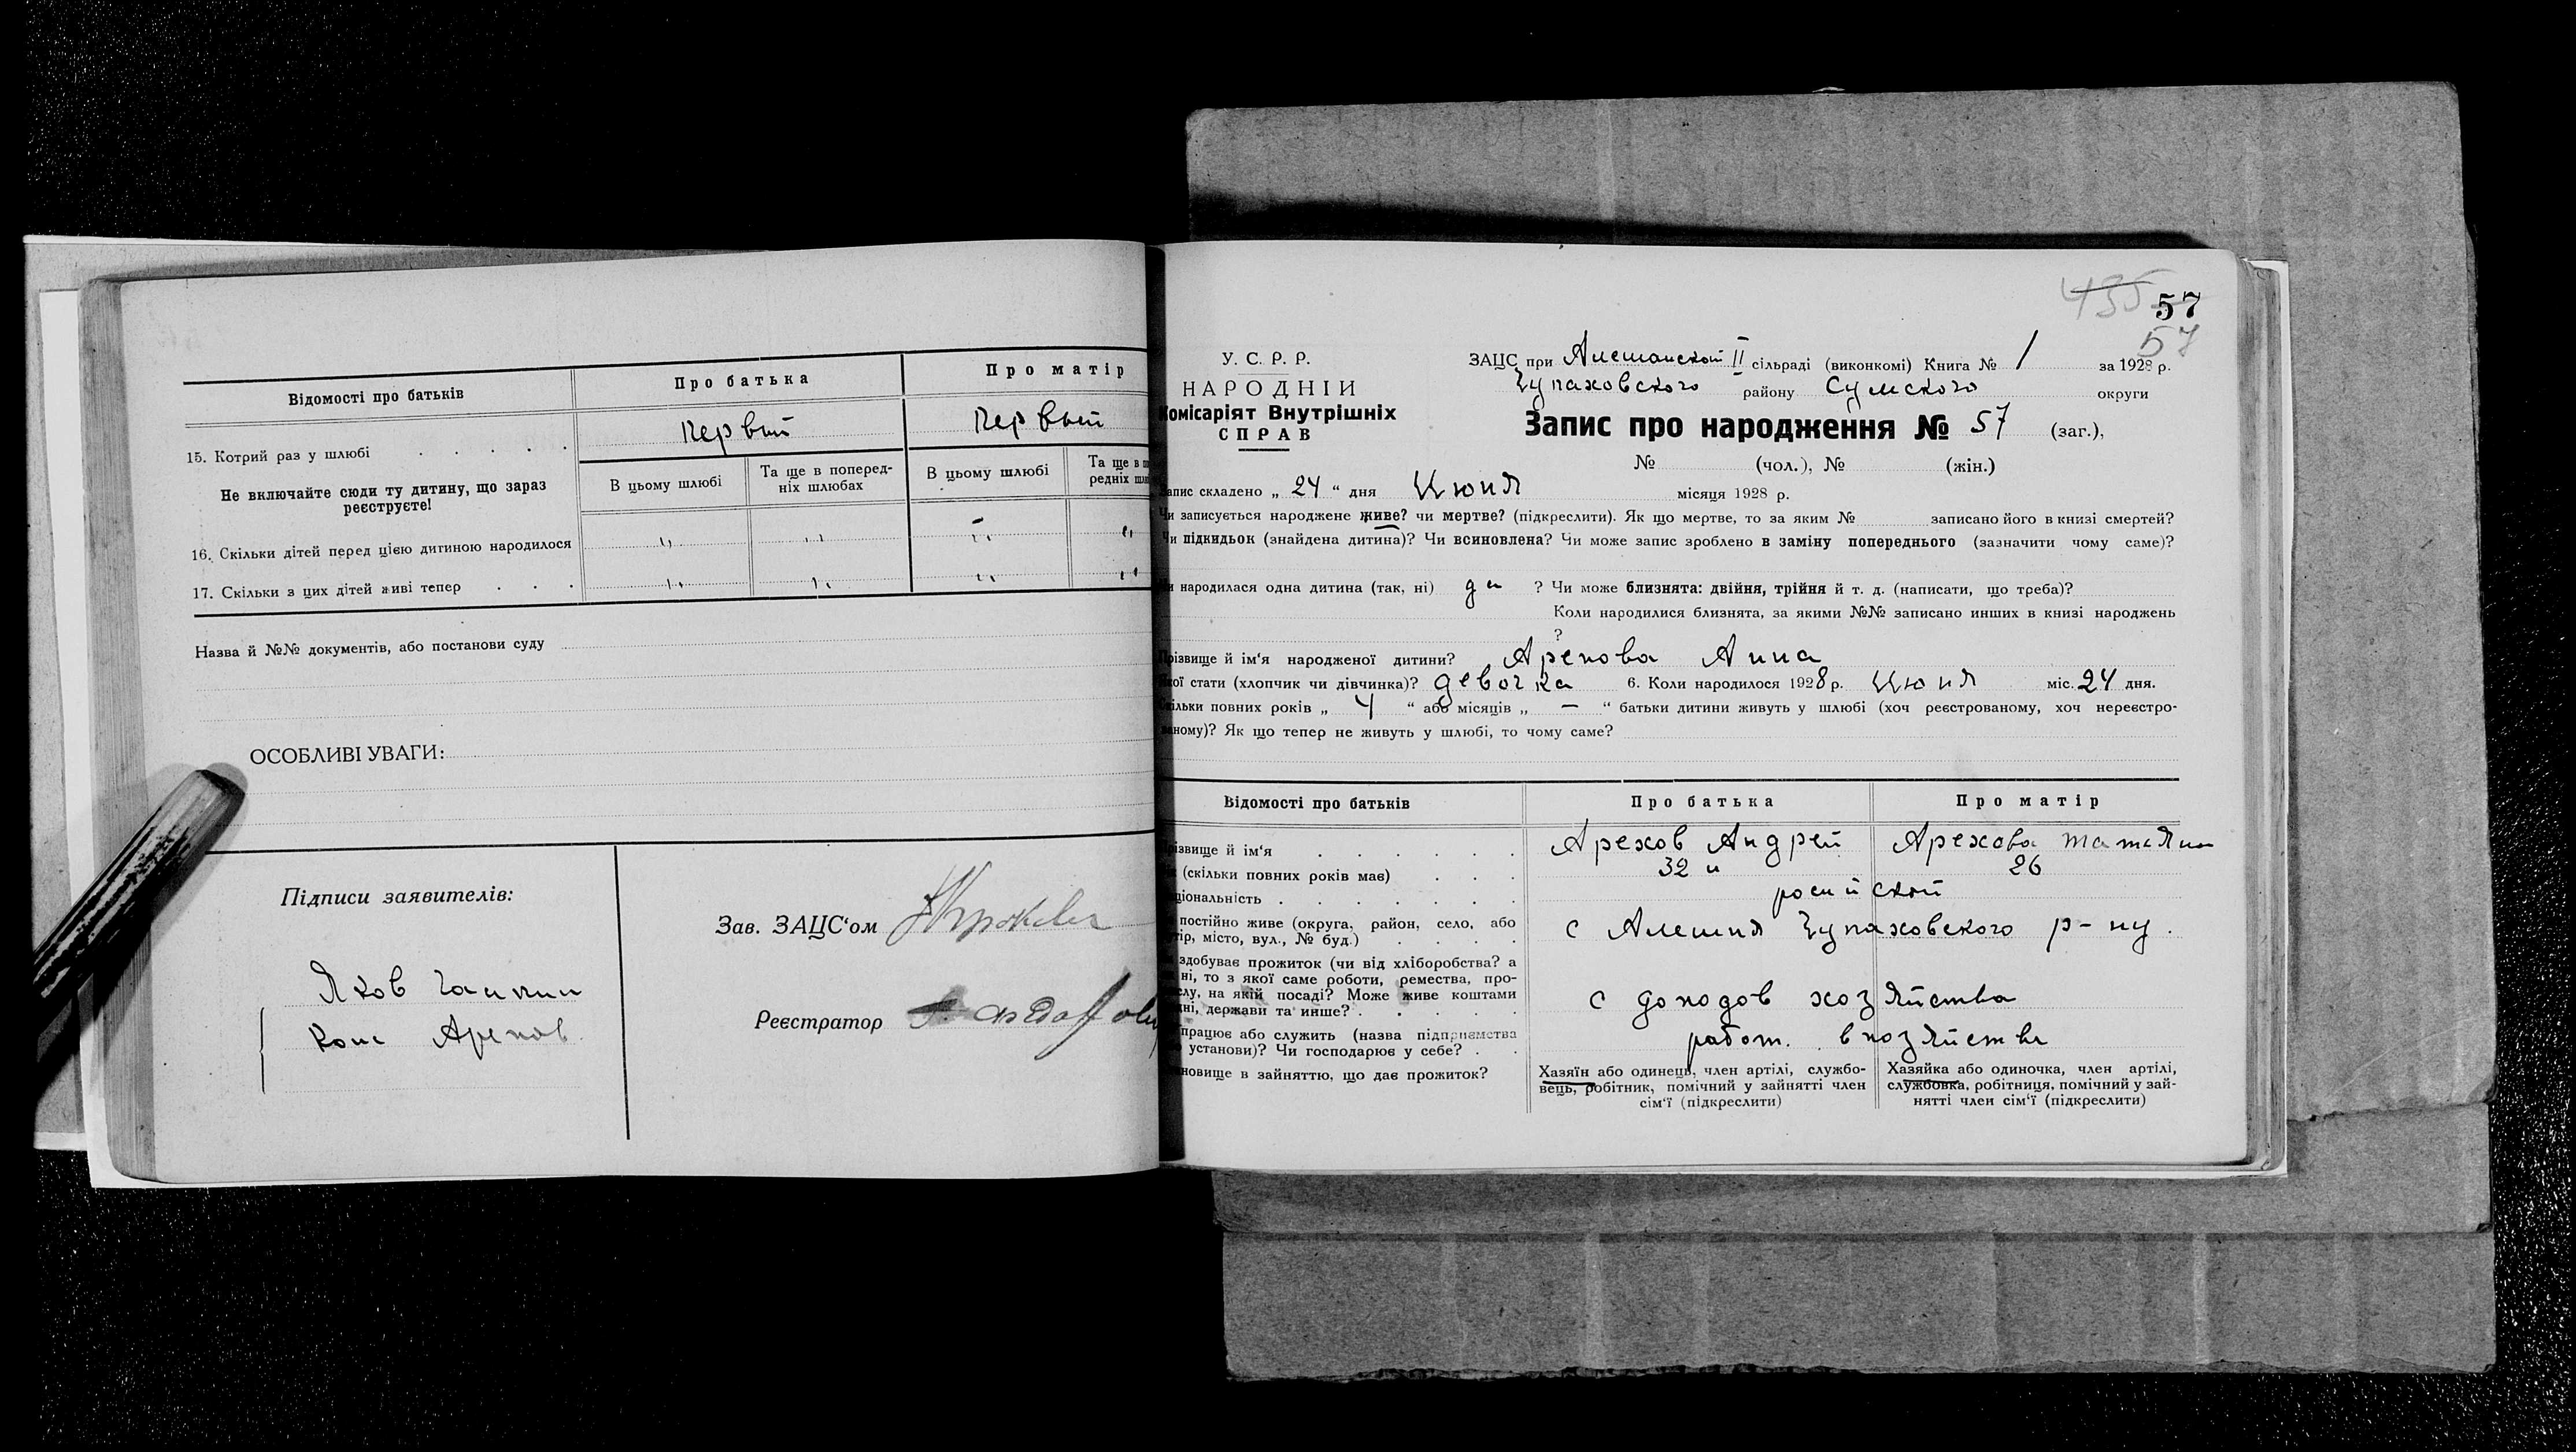 Відомості про батьків
Про батька
Про матір
15. Котрий раз у шлюбі . . . . .
Первый
Первый
Не включайте сюди ту дитину, що зараз
реєструєте!
В цьому шлюбі
Та ще в поперед-
ніх шлюбах
В цьому шлюбі
Та ще в
редніх
16. Скільки дітей перед цією дитиною народилося
17. Скільки з цих дітей живі тепер . . .
Назва й №№ документів, або постанови суду
ОСОБЛИВІ УВАГИ:
Підписи заявителів:
Яков
Арехов
Зав. ЗАЦС‘ом
Реєстратор
435 57
57
У. С. Р. Р.
НАРОДНІЙ
Комісаріят Внутрішніх
СПРАВ
ЗАЦС при Алешанской II сільраді (виконкомі) Книга № 1 за 1928 р.
Чупаховского району Сумского округи
Запис про народження № 57 (заг.),
№ (чол.), № (жін.)
Запис складено „ 24 “ дня Июня місяця 1928 р.
Чи записується народжене живе? чи мертве? (підкреслити). Як що мертве, то за яким № записано його в книзі смертей?
Чи підкидьок (знайдена дитина)? Чи всиновлена? Чи може запис зроблено в заміну попереднього (зазначити чому саме)?
народилася одна дитина (так, ні) да ? Чи може близнята: двійня, трійня й т. д. (написати, що треба)?
Коли народилися близнята, за якими №№ записано инших в книзі народжень
?
Прізвище й ім‘я народженої дитини? Арехова Анна
стати (хлопчик чи дівчинка)? девочка 6. Коли народилося 1928 р. Июня міс. 24 дня.
Скільки повних років „ 4 “ або місяців „ — “ батьки дитини живуть у шлюбі (хоч реєстрованому, хоч нереєстро-
ваному)? Як що тепер не живуть у шлюбі, то чому саме?
Відомості про батьків
Про батька
Про матір
Прізвище й ім‘я . . . . . .
Арехов Андрей
Арехова Татьяна
(скільки повних років має) . . .
32
26
національність . . . . . . .
росийской
постійно живе (округа, район, село, або
місто, вул., № буд.) . . . .
с Алешня Чупаховского р-ну.
здобуває прожиток (чи від хліборобства? а
ні, то з якої саме роботи, ремества, про-
на якій посаді? Може живе коштами
держави та инше? . . . . .
с доходов хозяйства
працює або служить (назва підприємства
установи)? Чи господарює у себе? . .
работ. в хозяйстве
становище в зайняттю, що дає прожиток?
Хазяїн або одинець, член артілі, службо-
вець, робітник, помічний у зайнятті член
сім‘ї (підкреслити)
Хазяйка або одиночка, член артілі,
службовка, робітниця, помічний у зай-
нятті член сім‘ї (підкреслити)